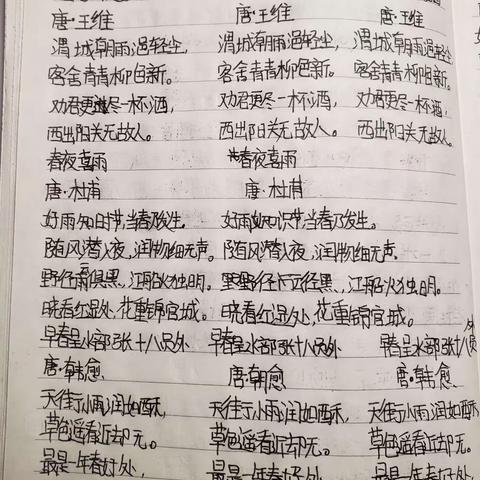 唐·王维 唐·王维 唐·王维
渭城朝雨浥轻尘, 渭城朝雨浥轻尘, 渭城朝雨浥轻尘
客舍青青柳色新。 客舍青青柳色新。 客舍青青柳色新。
劝君更尽一杯酒, 劝君更尽一杯酒, 劝君更尽一杯酒,
西出阳关无故人。 西出阳关无故人。 西出阳关无故人。
春夜喜雨 春夜喜雨
唐·杜甫 唐·杜甫
好雨知时节,当春乃发生。 好雨知识节,当春乃发生。
随风潜入夜,润物细无声。 随风潜入夜,润物细无声。
野径云俱黑,江船火独明。 野径 径黑,江船火独明。
晓看红湿处,花重锦官城。 晓看红湿处,花重锦官城。
早春呈水部张十八员外 早春呈水部张十八员外 早春呈水部张十八员外
唐·韩愈 唐·朝愈 唐·韩愈
天街小雨润如酥, 天街小雨润如酥, 天街小雨润如酥
草色遥看近却无。 草色遥看近却无。 草色遥看近却无。
最是一年春好处, 最是一年春好处 最是一年春好处,